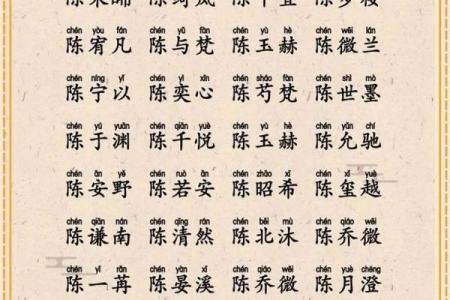 chén yòu fán chén yǔ fàn chén yù hè chén wēi lán
陈宥凡 陈与梵 陈玉赫 陈微兰
chén níng yǐ chén yì xīn chén sháo fàn chén shì mò
陈宁以 陈奕心 陈芍梵 陈世墨
chén yú yuān chén qiān yuè chén yù hè chén yǔn chí
陈于渊 陈千悦 陈玉赫 陈允驰
chén ān yě chén ruò ān chén zhāo xī chén xǐ yuè
陈安野 陈若安 陈昭希 陈玺越
chén qiān nán chén qīng rán chén běi mù chén qiáo wēi
陈谦南 陈清然 陈北沐 陈乔微
chén yī rǎn chén yàn xī chén qiáo wēi chén yuè chéng
陈一苒 陈晏溪 陈乔微 陈月澄